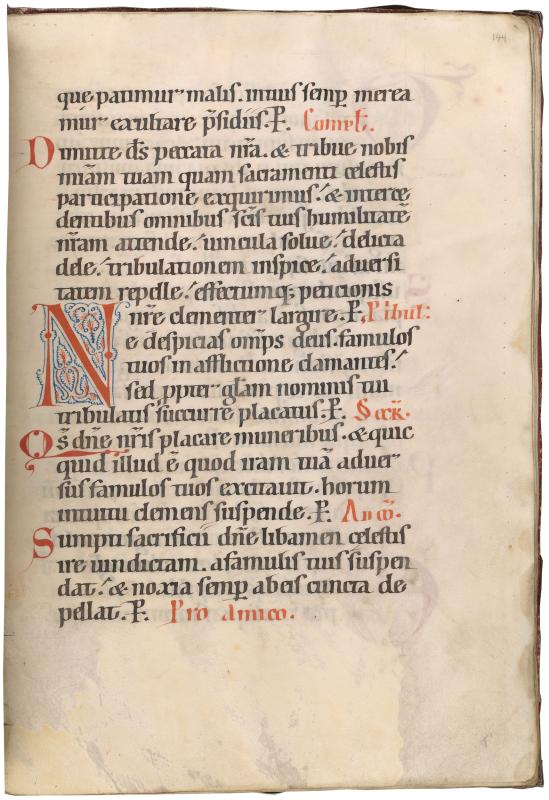 144
que patimur malis. intus semp̄ merea
mur exultare p̄sidiis. P̄. Compl̄.
Dimitte d̄s peccata nr̄a. & tribue nobis
miam̄ tuam quam sacramenti celestis
participatione exquirimus. & interce
dentibus omnibus sc̄is tuis humilitatē
nr̄am attende. uincula solue. delicta
dele. tribulationem inspice. aduersi
tatem repelle. effectumq; peticionis
nr̄e clementer largire. P̄. P̄ tribul:
Ne despicias omp̄s deus. famulos
tuos in afflictione clamantes.
sed ppter gl̄am nominis tui
tribulatis succurre placatus. P̄. Secr̄.
Qs̄ dn̄e nr̄is placare muneribus. & quic
quid illud ē quod iram tuā aduer
sus famulos tuos excitauit. horum
intuitu clemens suspende. P̄.
Sumpti sacrificii dn̄e libamen celestis
ire uindictam. a famulis tuis suspen
dat. & noxia semp̄ ab eis cuncta de
pellat. P̄. Pro Amico.